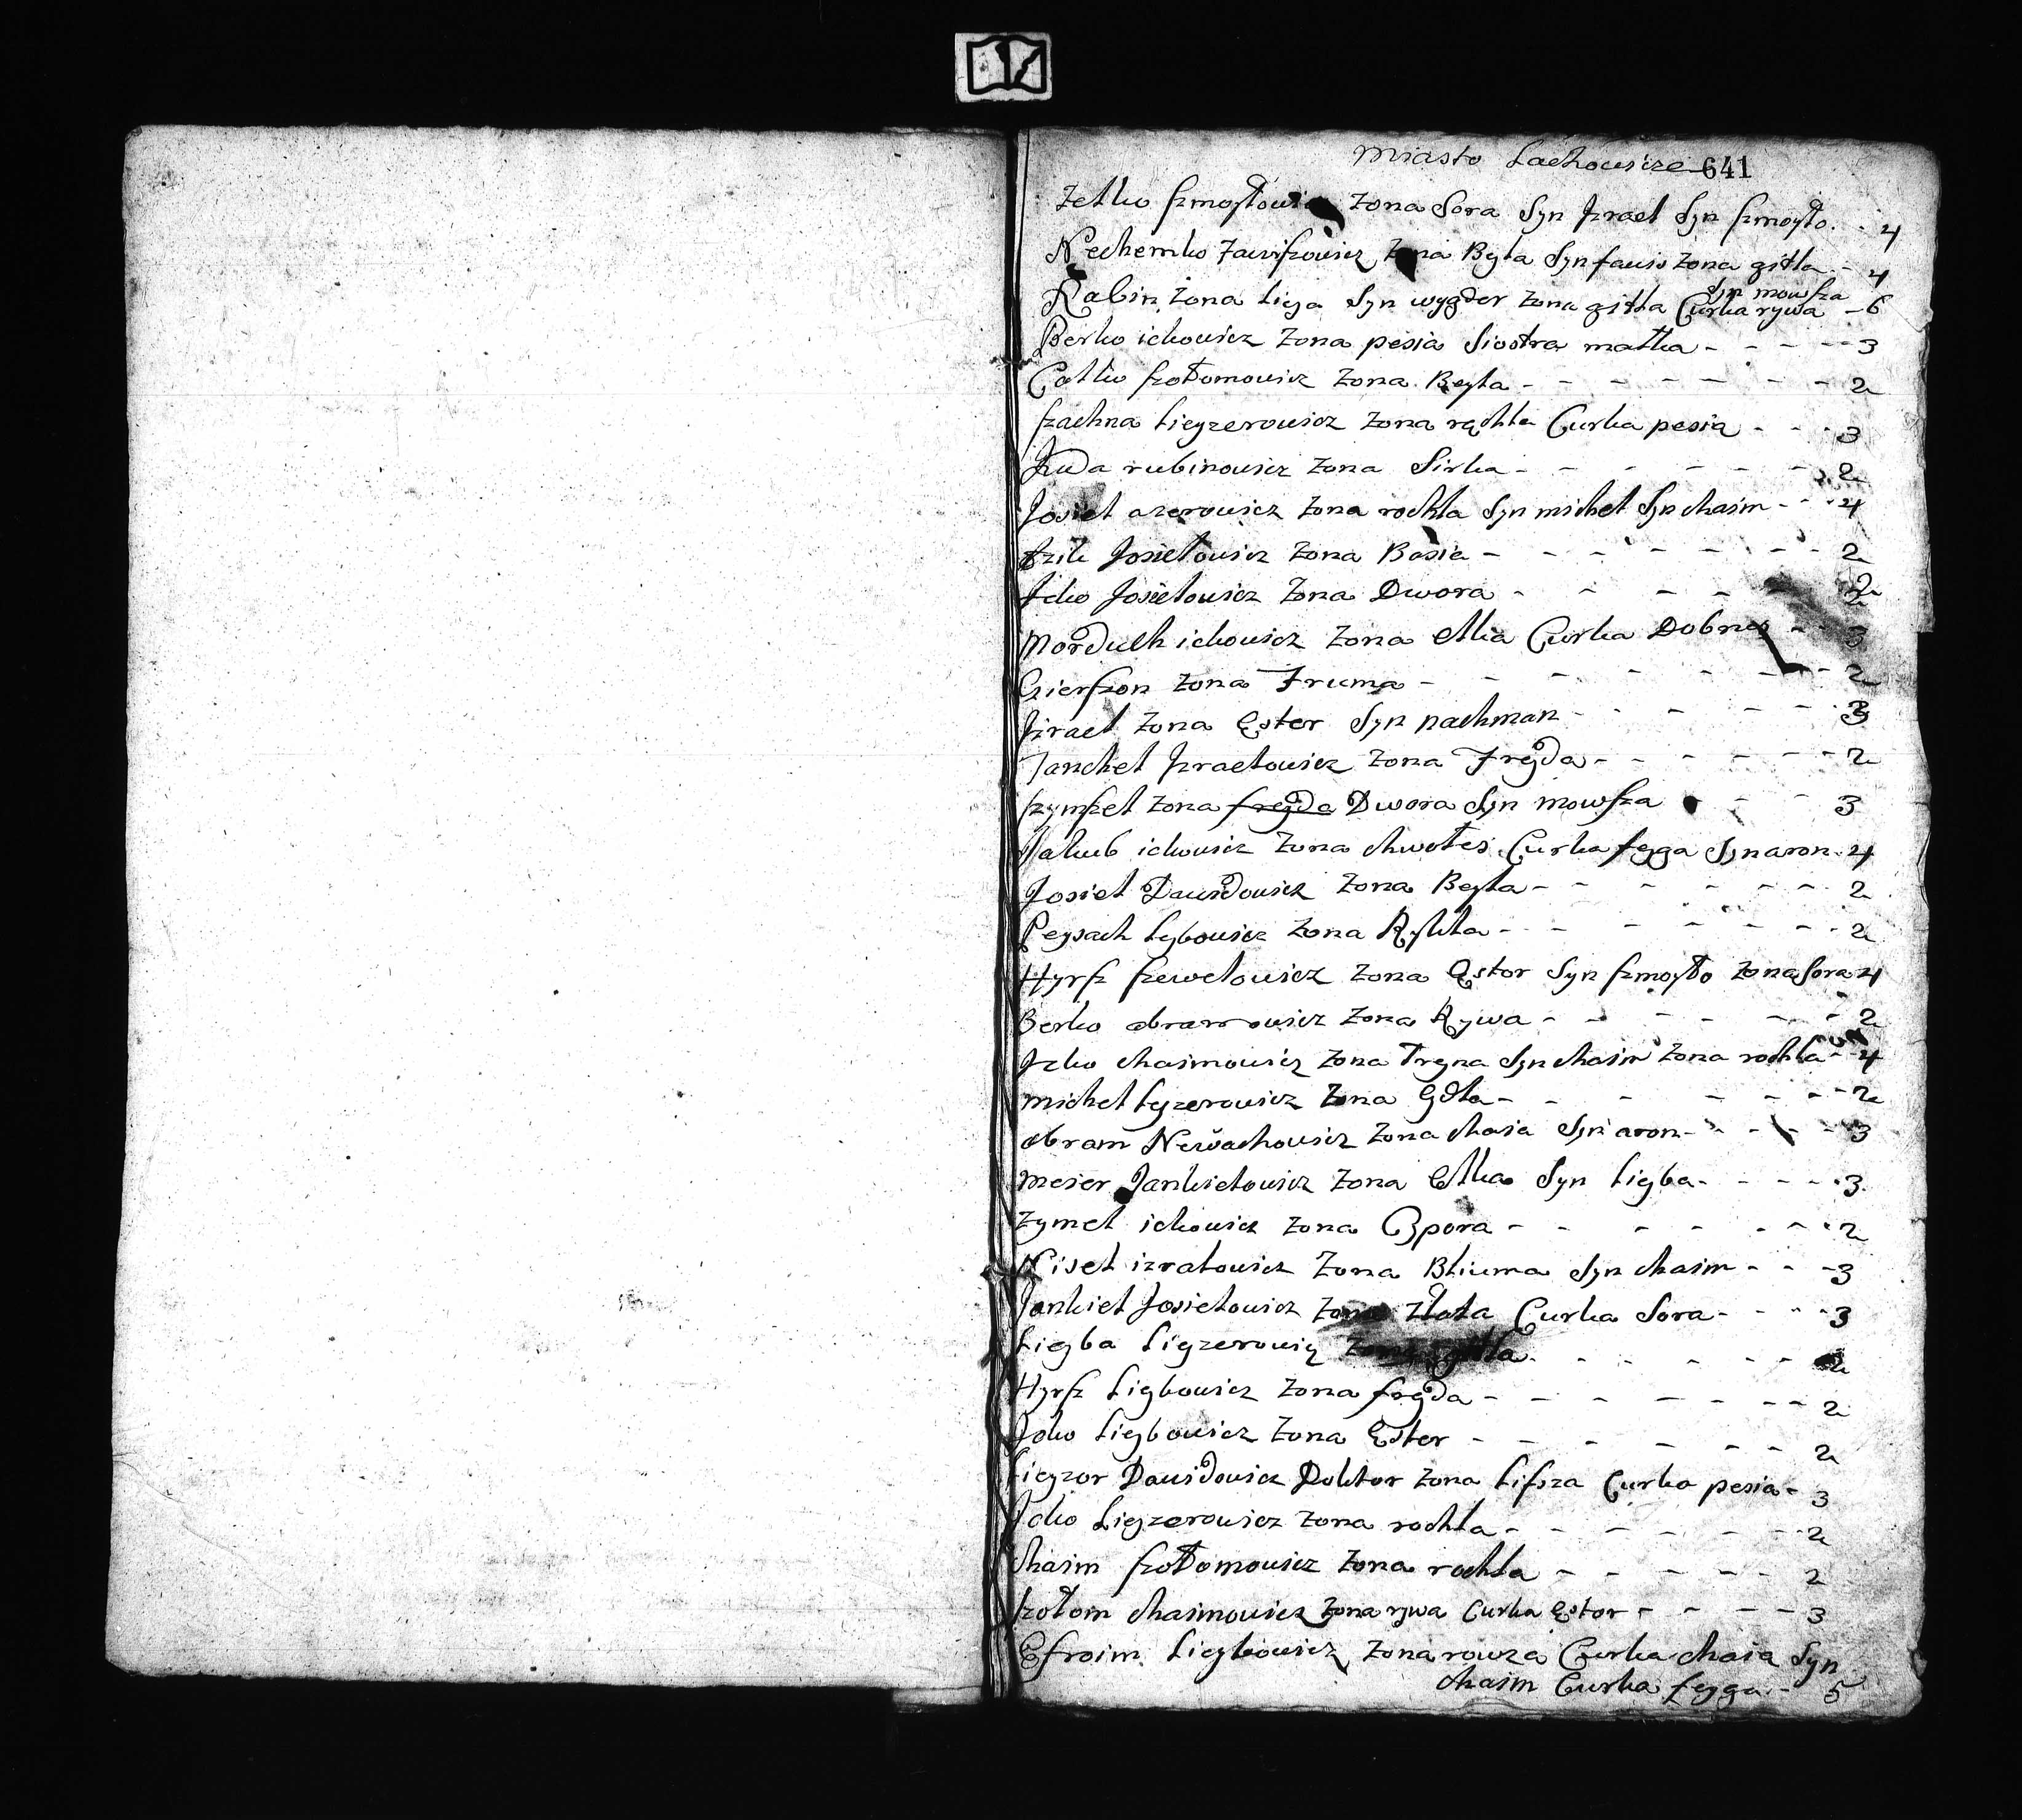 Miasto Lachowicze 641
Zelko Szmoyłowicz Zona Sora Syn Jzrael Syn Szmoyło - 4
Nechemko Fawiszowicz Zona Beyla Syn fawis Zona gitla - 4
Syn mowsza
Rabin Zona lieja Syn wygder Zona gitla Curka rywa - 6
Berko ickowicz Zona pesia Siostra matka - - - - 3
Calko szołomowicz Zona Beyla - - - - - - - 2
szachna lieyzerowicz Zona rachla Curka pesia - - - 3
Juda rubinowicz Zona Sirka - - - - - - 2
Josiel azerowicz Zona rochla Syn michel Syn chaim - - 4
Josielowicz Zona Basia - - - - - - - 2
Jcko Josielowicz Zona Dwora - - - - - 2
Morduch ickowicz Zona elka Curka Dobra - - 3
Gierszon Zona Fruma - - - - - - - 2
Jzrael Zona Ester Syn nachman - - - - - 3
Janchel Jzraelowicz Zona Freyda - - - - - - 2
szymszel Zona freyda Dwora Syn mowsza - - - 3
Jakub ickowicz Zona chwoles Curka feyga Syn aron - 4
Josiel Dawidowicz Zona Beyla - - - - - - 2
Peysach leybowicz Zona Rykla - - - - - - - 2
Hyrsz szewelowicz Zona Estor Syn szmoyło Zona Sora 4
Berko abramowicz Zona Rywa - - - - - - 2
Jcko chaimowicz Zona Treyna Syn chaim Zona rochla - 4
michel leyzerowicz Zona Edla - - - - - - - 2
abram Newachowicz Zona chaia Syn aron - - - - 3
meier Jankielowicz Zona Elka Syn lieyba - - - - 3
Zymel ickowicz Zona Cypora - - - - - - - 2
Nisel izralowicz Zona Bliuma Syn chaim - - - 3
Jankiel Josielowicz Zona Złata Curka Sora - - - - 3
Lieyba Lieyzerowicz Zona - - - - - - 2
Hyrsz Lieybowicz Zona freyda - - - - - - - 2
Jcko Lieybowicz Zona Ester - - - - - - - 2
Lieyzor Dawidowicz Doktor Zona lifsza Curka pesia - 3
Jcko Lieyzerowicz Zona rochla - - - - - - - 2
Chaim szołomowicz Zona rochla - - - - - - 2
szołom chaimowicz Zona rywa Curka Estor - - - - 3
Efroim Lieybowicz Zona rowza Curka chaia Syn
chaim Curka feyga - 5